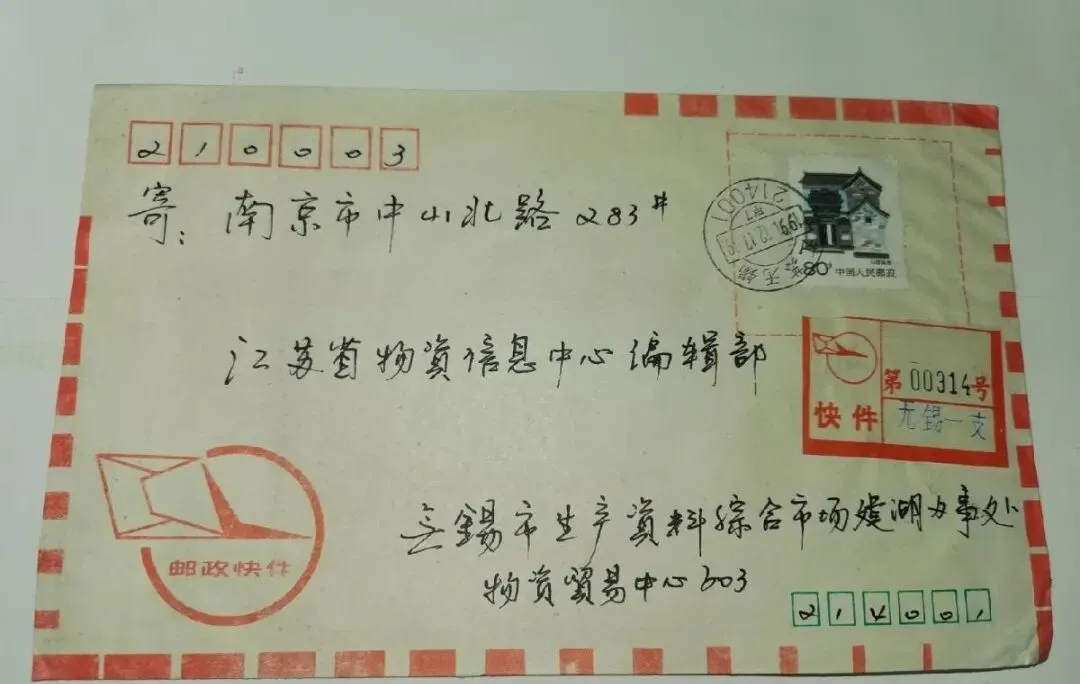 210003
寄: 南京市中山北路283#
214001
1991.12.17.19
无锡
80分 中国人民邮政
江苏省物資信息中心编辑部
第00314号
快件
无锡一支
邮政快件
無錫市生产資料綜合市场建湖办事处
物资貿易中心303
214001